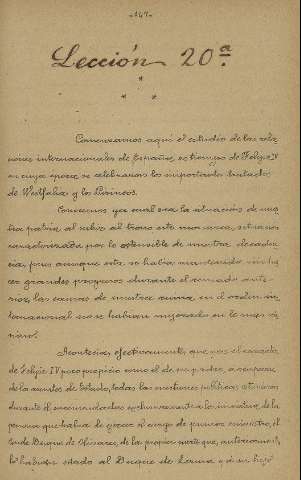 -147-
Lección 20ª.
Comenzamos aquí el estudio de las rela-
ciones internacionales de España, en tiempo de Felipe IV
en cuya época se celebraron los importantes tratados
de Westfalia y los Pirineos.
Conocemos ya cual era la situación de nues-
tra patria, al subir al trono este monarca, situación
caracterizada por lo ostensible de nuestra decaden-
cia, pues aunque esta se había mantenido sin ha-
cer grandes progresos durante el reinado ante-
rior, las causas de nuestra ruina en el orden in-
ternacional no se habían mejorado en lo mas mí-
nimo.
Acontecía, efectivamente, que, por el caracter
de Felipe IV poco propicio como el de su padre, a ocuparse
de los asuntos de Estado, todas las cuestiones políticas estuvieron
durante el encomendadas exclusivamente a la iniciativa de la
persona que había de ejercer el cargo de primer ministro, el
Conde Duque de Olivares, de la propia suerte que, anteriormente,
lo habían estado al Duque de Lerma y á su hijo